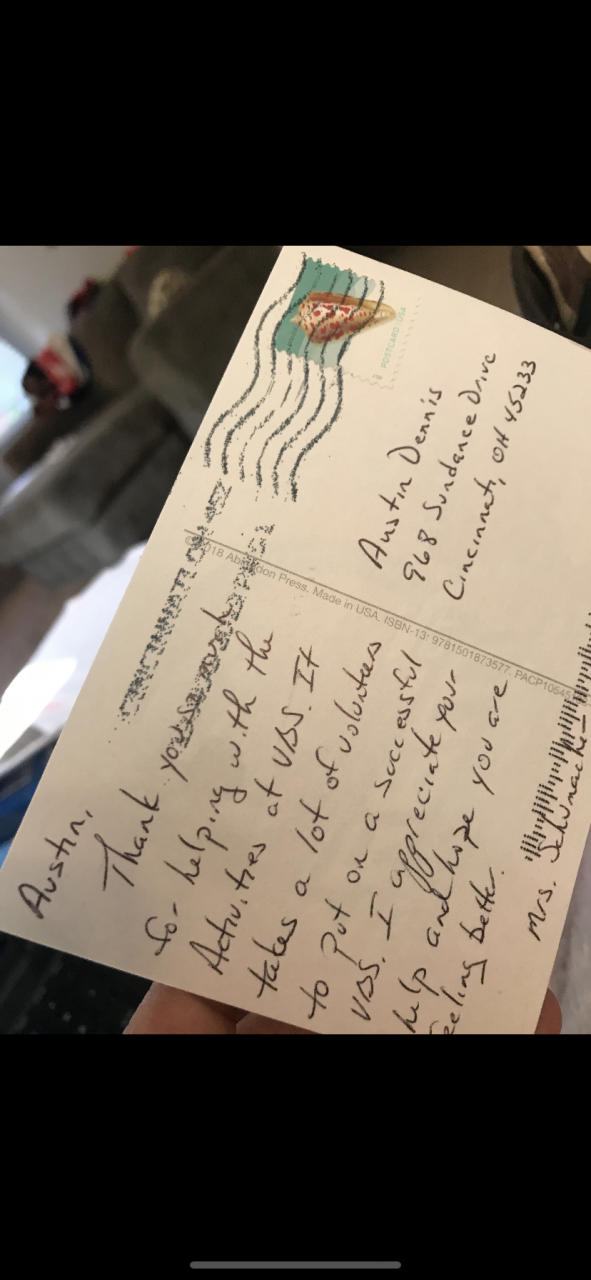 Austin,
Thank you so much
for helping with the
Activities at VBS. It
takes a lot of volunters
to put on a successful
VBS. I appreciate your
help and hope you are
feeling better.
Mrs.
© 2018 Abingdon Press. Made in USA. ISBN-13: 9781501873577.
POSTCARD USA
Austin Dennis
968 Sundance Drive
Cincinnati, OH 45233